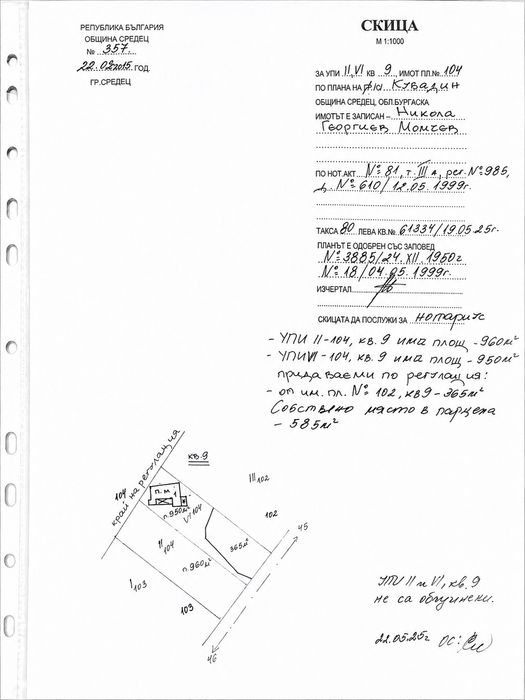 РЕПУБЛИКА БЪЛГАРИЯ
ОБЩИНА СРЕДЕЦ
№ 357
ГОД.
ГР.СРЕДЕЦ
СКИЦА
М 1:1000
ЗА УПИ II,VI КВ 9, ИМОТ ПЛ.№ 104
ПО ПЛАНА НА
ОБЩИНА СРЕДЕЦ, ОБЛ.БУРГАСКА
ИМОТЪТ Е ЗАПИСАН – Никола
Георгиев Момчев
ПО НОТ.АКТ № 81, т. III, рег. № 985,
д. № 610/12.05.1999г.
ТАКСА 80 ЛЕВА КВ.№ 61334/19.05.25г.
ПЛАНЪТ Е ОДОБРЕН СЪС ЗАПОВЕД
№ 3885/24.XII.1950г
№ 18/04.05.1999г.
ИЗЧЕРТАЛ
СКИЦАТА ДА ПОСЛУЖИ ЗА нотариус
- УПИ II-104, кв. 9 има площ - 960м²
- УПИ VI-104, кв. 9 има площ - 950м²
придаваеми по регулация:
- от им. пл. № 102, кв 9 - 365м²
Собствено място в парцела
- 585м²
кв. 9
край на регулация
104
III 102
П.М
1
п.950м²
VI 104
102
45
II 104
п.960м²
365м²
I 103
103
46
УПИ II и VI, кв. 9
не са общински.
22.05.25г ОС: